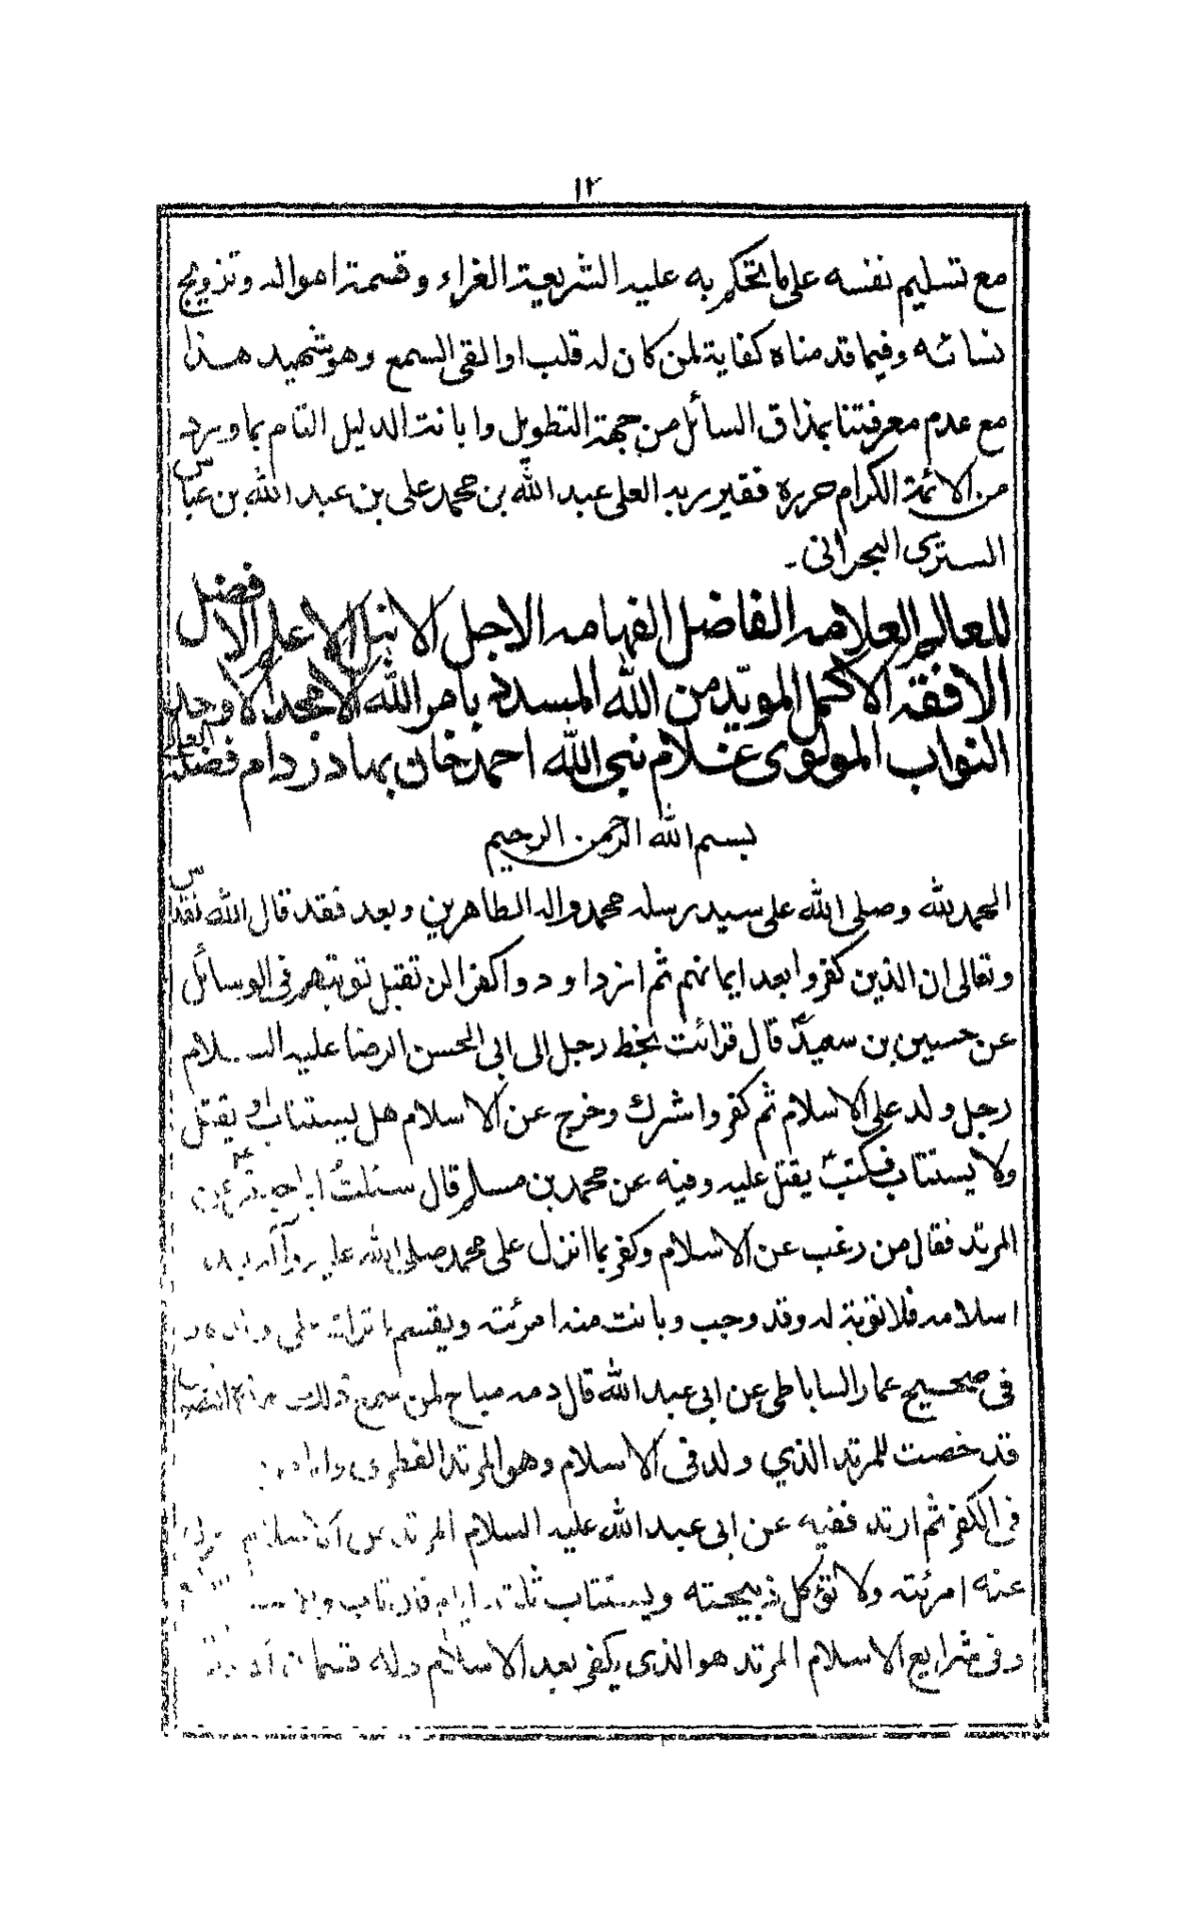 ١٢
مع تسليم نفسه على ما يحكم به عليه الشريعة الغراء وقسمة امواله وتزويج
نسائه وفيما قدمناه كفاية لمن كان له قلب او القى السمع وهو شهيد هذا
مع عدم معرفتنا بمذاق السائل من جهة التطويل وابانة الدليل التام بما ورد
من الائمة الكرام حرره فقير ربه العلى عبد الله بن محمد على بن عبد الله بن عباس
السترى البحرانى۔
للعالم العلامه الفاضل الفهامه الاجل الانبل الاعلم الافضل
الافقه الاكمل المويّد من الله المسدد بامر الله الامجد الاوحد
النواب المولوى غلام نبى الله احمد خان بهادر دام فضله العالى
بسم الله الرحمن الرحيم
الحمد لله وصلى الله على سيد رسله محمد واله الطاهرين وبعد فقد قال الله تقدس
وتعالى ان الذين كفروا بعد ايمانهم ثم ازدادوا كفرا لن تقبل توبتهم فى الوسائل
عن حسين بن سعيد قال قرائت بخط رجل الى ابى الحسن الرضا عليه السلام
رجل ولد على الاسلام ثم كفر واشرك وخرج عن الاسلام هل يستتاب او يقتل
ولا يستتاب فكتب يقتل عليه وفيه عن محمد بن مسلم قال سئلت ابا جعفر عن
المرتد فقال من رغب عن الاسلام وكفر بما انزل على محمد صلى الله عليه وآله بعد
اسلامه فلا توبة له وقد وجب وبانت منه امرئته ويقسم ما ترك على ولده
فى صحيح عمار الساباطى عن ابى عبد الله قال دمه مباح لمن سمع ذلك
قد خصت للمرتد الذي ولد فى الاسلام وهو المرتد الفطرى واما
فى الكفر ثم ارتد ففيه عن ابى عبد الله عليه السلام المرتد عن الاسلام تعزل
عنه امرئته ولا تؤكل ذبيحته ويستتاب ثلثة ايام فان تاب والا
وفى شرايع الاسلام المرتد هو الذى يكفر بعد الاسلام وله قسمان